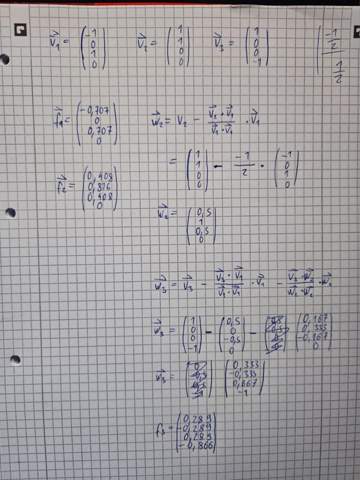 v₁ = (-1 0 1 0) v₂ = (1 1 0 0) v₃ = (1 0 0 -1) (-1/2 1/2
f₁ = (-0,707 0 0,707 0)
w₂ = v₂ - (v₂ · v₁)/(v₁ · v₁) · v₁
= (1 1 0 0) - -1/2 · (-1 0 1 0)
f₂ = (0,408 0,816 0,408 0)
w₂ = (0,5 1 0,5 0)
w₃ = v₃ - (v₃ · v₁)/(v₁ · v₁) · v₁ - (v₃ · w₂)/(w₂ · w₂) · w₂
w₃ = (1 0 0 -1) - (0,5 0 -0,5 0) - (0,167 0,333 -0,167 0)
w₃ = (0,333 -0,333 0,667 -1)
f₃ = (0,289 -0,289 0,289 -0,866)